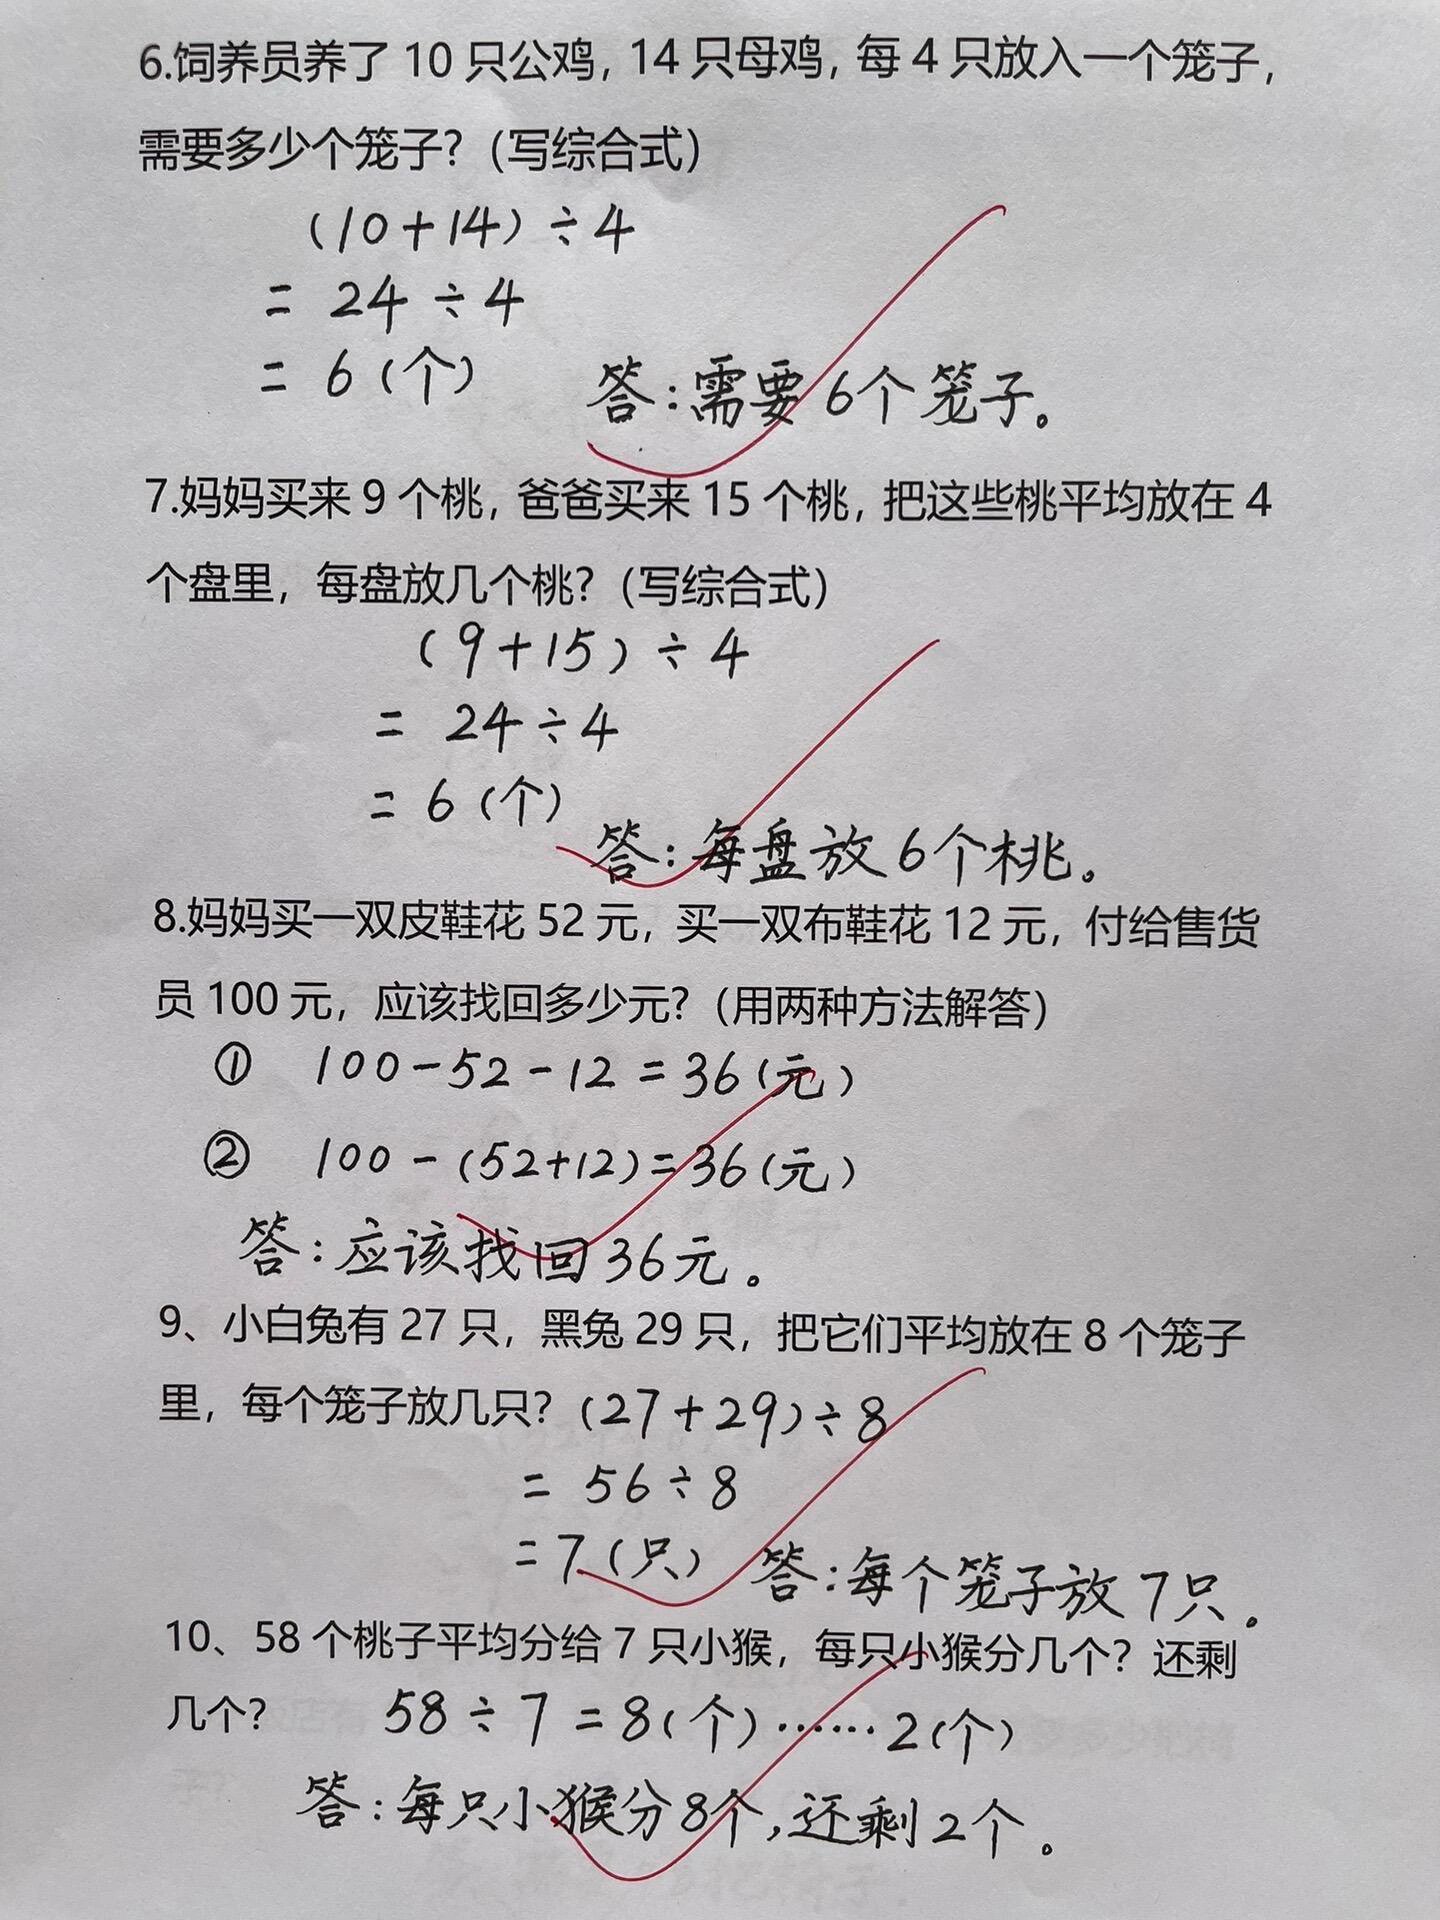 6.饲养员养了 10 只公鸡，14 只母鸡，每 4 只放入一个笼子，
需要多少个笼子？（写综合式）
(10+14)÷4
= 24÷4
= 6(个)
答：需要6个笼子。
7.妈妈买来 9 个桃，爸爸买来 15 个桃，把这些桃平均放在 4
个盘里，每盘放几个桃？（写综合式）
(9+15)÷4
= 24÷4
= 6(个)
答：每盘放6个桃。
8.妈妈买一双皮鞋花 52 元，买一双布鞋花 12 元，付给售货
员 100 元，应该找回多少元？（用两种方法解答）
① 100-52-12=36(元)
② 100-(52+12)=36(元)
答：应该找回36元。
9、小白兔有 27 只，黑兔 29 只，把它们平均放在 8 个笼子
里，每个笼子放几只？(27+29)÷8
= 56÷8
=7(只)
答：每个笼子放7只。
10、58 个桃子平均分给 7 只小猴，每只小猴分几个？还剩
几个？ 58÷7=8(个)……2(个)
答：每只小猴分8个，还剩2个。